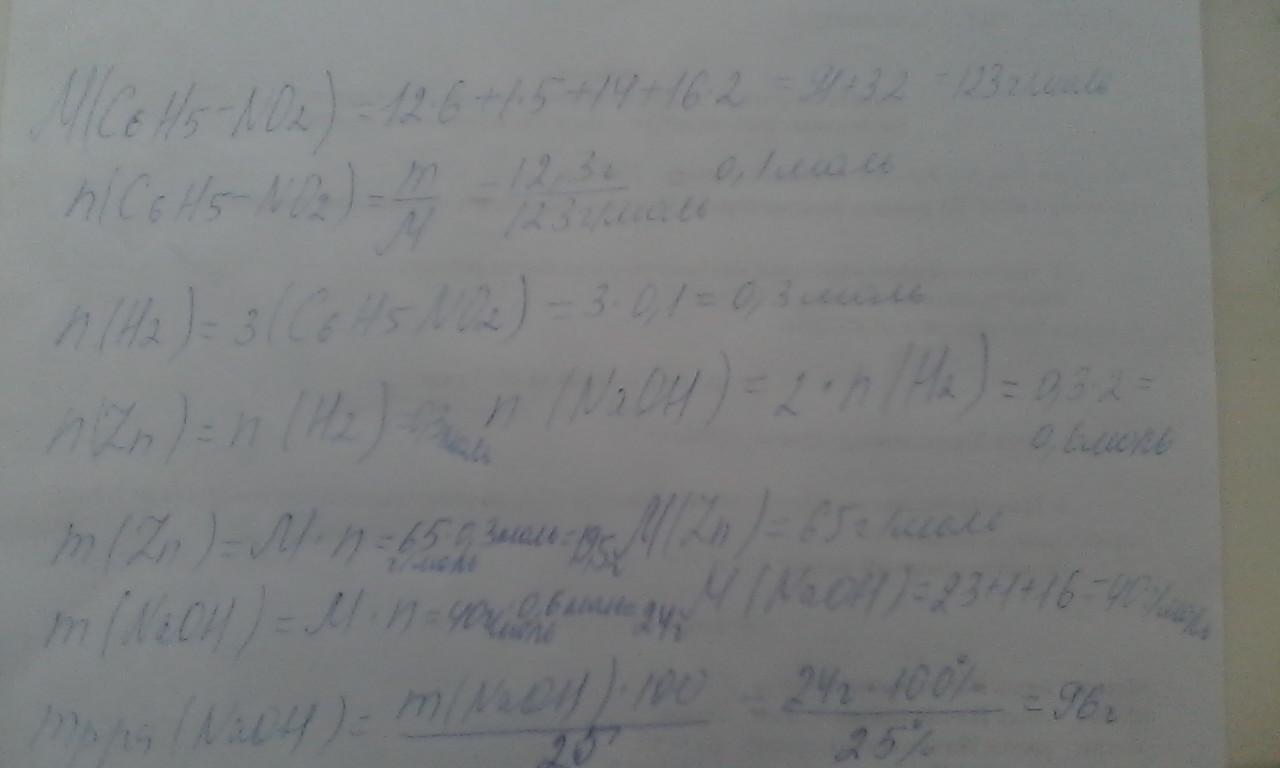 M(C6H5-NO2) = 12·6+1·5+14+16·2 = 91+32 = 123г/моль
n(C6H5-NO2) = m/M = 12,3г/123г/моль = 0,1моль
n(H2) = 3(C6H5-NO2) = 3·0,1 = 0,3моль
n(Zn) = n(H2) = 0,3моль n(NaOH) = 2·n(H2) = 0,3·2 =
0,6моль
m(Zn) = M·n = 65г/моль·0,3моль = 19,5г M(Zn) = 65г/моль
m(NaOH) = M·n = 40г/моль·0,6моль = 24г M(NaOH) = 23+1+16 = 40г/моль
mр-ра(NaOH) = m(NaOH)·100/25 = 24г·100%/25% = 96г